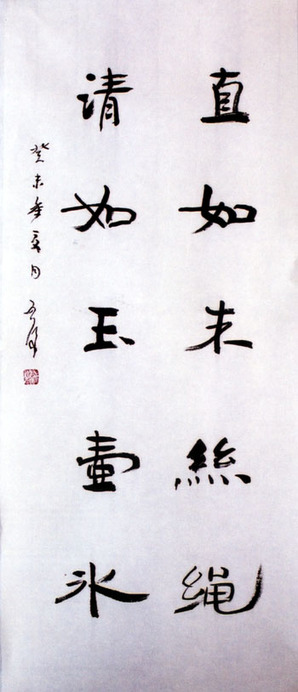 直如朱絲绳
清如玉壺冰
癸未年夏月